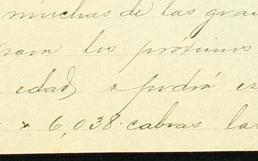 muchas de las gra
los próximos
edad, o podrá e
x 6,038 cabras la